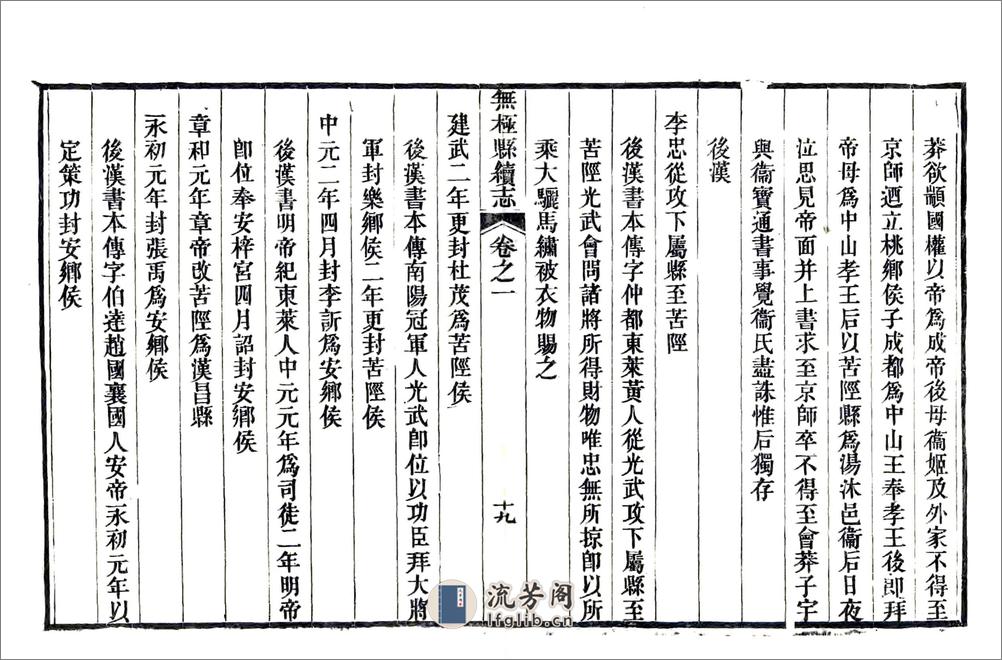 莽欲顓國權以帝爲成帝後母衞姬及外家不得至
京師迺立桃鄉侯子成都爲中山王奉孝王後即拜
帝母爲中山孝王后以苦陘縣爲湯沐邑衞后日夜
泣思見帝面并上書求至京師卒不得至會莽子宇
與衞寶通書事覺衞氏盡誅惟后獨存
後漢
李忠從攻下屬縣至苦陘
後漢書本傳字仲都東萊黃人從光武攻下屬縣至
苦陘光武會問諸將所得財物唯忠無所掠卽以所
乘大驪馬繡被衣物賜之
無極縣續志
卷之一
十九
建武二年更封杜茂爲苦陘侯
後漢書本傳南陽冠軍人光武卽位以功臣拜大將
軍封樂鄉侯二年更封苦陘侯
中元二年四月封李訢爲安鄉侯
後漢書明帝紀東萊人中元元年爲司徒二年明帝
卽位奉安梓宮四月詔封安鄉侯
章和元年章帝改苦陘爲漢昌縣
永初元年封張禹爲安鄉侯
後漢書本傳字伯達趙國襄國人安帝永初元年以
定策功封安鄉侯
流芳阁
lfglib.cn